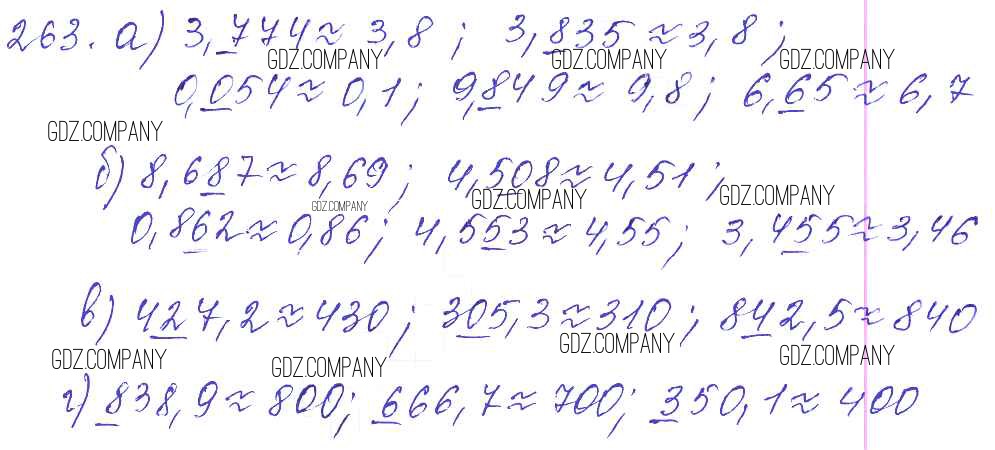 263. а) 3,774 ≈ 3,8 ; 3,835 ≈ 3,8 ;
GDZ.COMPANY GDZ.COMPANY GDZ.COMPANY
0,054 ≈ 0,1 ; 9,849 ≈ 9,8 ; 6,65 ≈ 6,7
GDZ.COMPANY
б) 8,687 ≈ 8,69 ; 4,508 ≈ 4,51 ;
GDZ.COMPANY GDZ.COMPANY GDZ.COMPANY
0,862 ≈ 0,86 ; 4,553 ≈ 4,55 ; 3,455 ≈ 3,46
в) 427,2 ≈ 430 ; 305,3 ≈ 310 ; 842,5 ≈ 840
GDZ.COMPANY GDZ.COMPANY GDZ.COMPANY GDZ.COMPANY
г) 838,9 ≈ 800 ; 666,7 ≈ 700 ; 350,1 ≈ 400